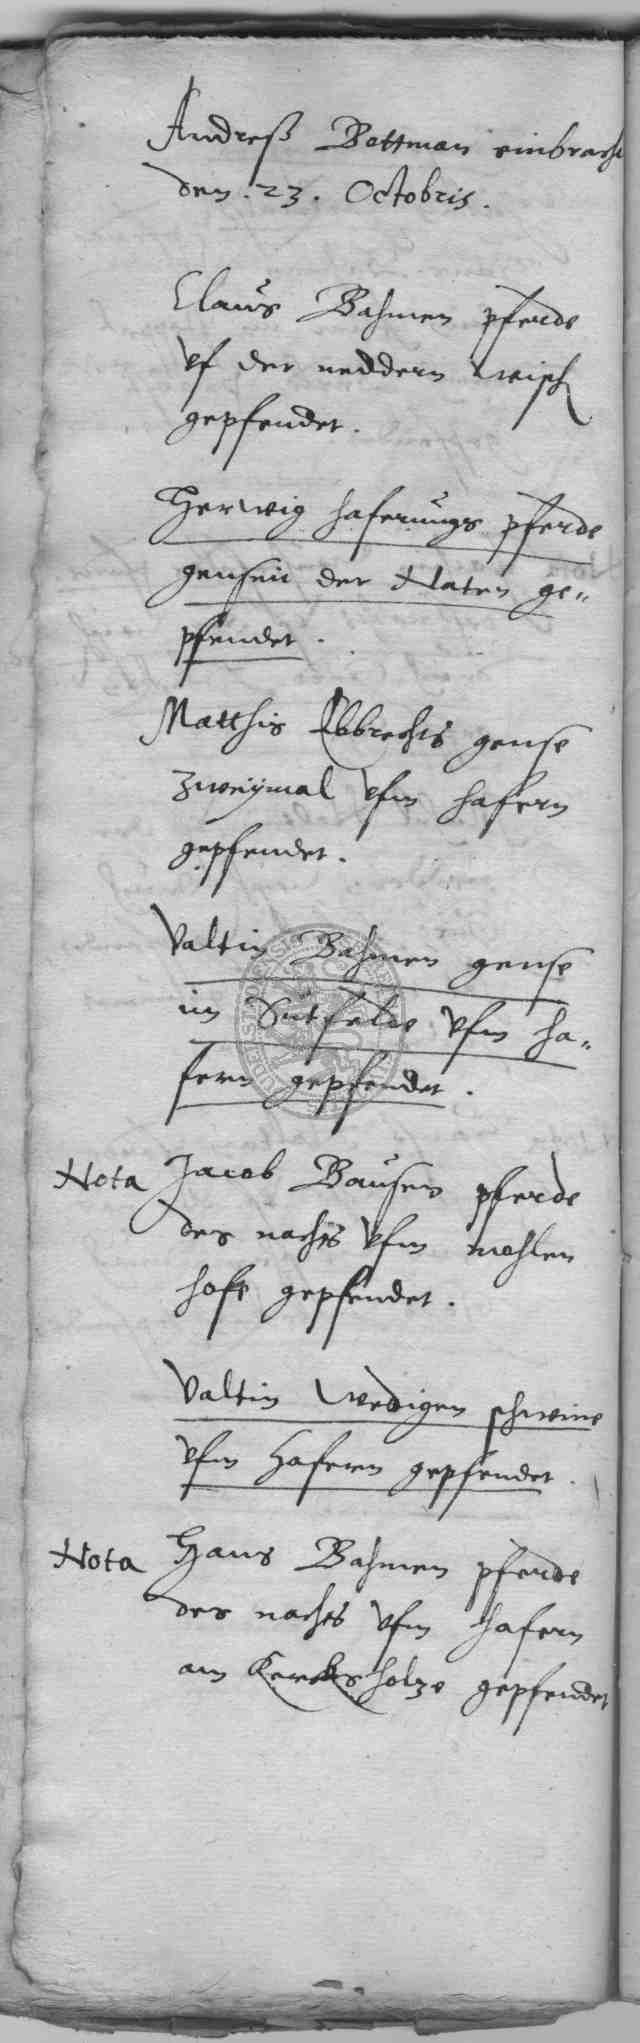 Andreß Bottman einbracht
den .23. Octobris.
Claŭs Bahmen pferde
vf der neddern wisch
gepfendet.
Herwig haferŭngs pferde
genseit der Naten ge„
pfendet.
Matthis Ebbrechts gense
zweÿmal vfm hafern
gepfendet.
Valtin Bahmen gense
im Sutfelde vfm ha„
fern gepfendet.
Nota Jacob Baŭsen pferde
des nachts vfm mohlen
hofe gepfendet.
Valtin Wedigen schweine
vfm hafern gepfendet.
Nota Hans Bahmen pferde
des nachts vfm hafern
am Kerckholze gepfendet